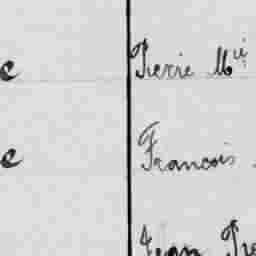 e Pierre Mie
e Francois
Jean Pie